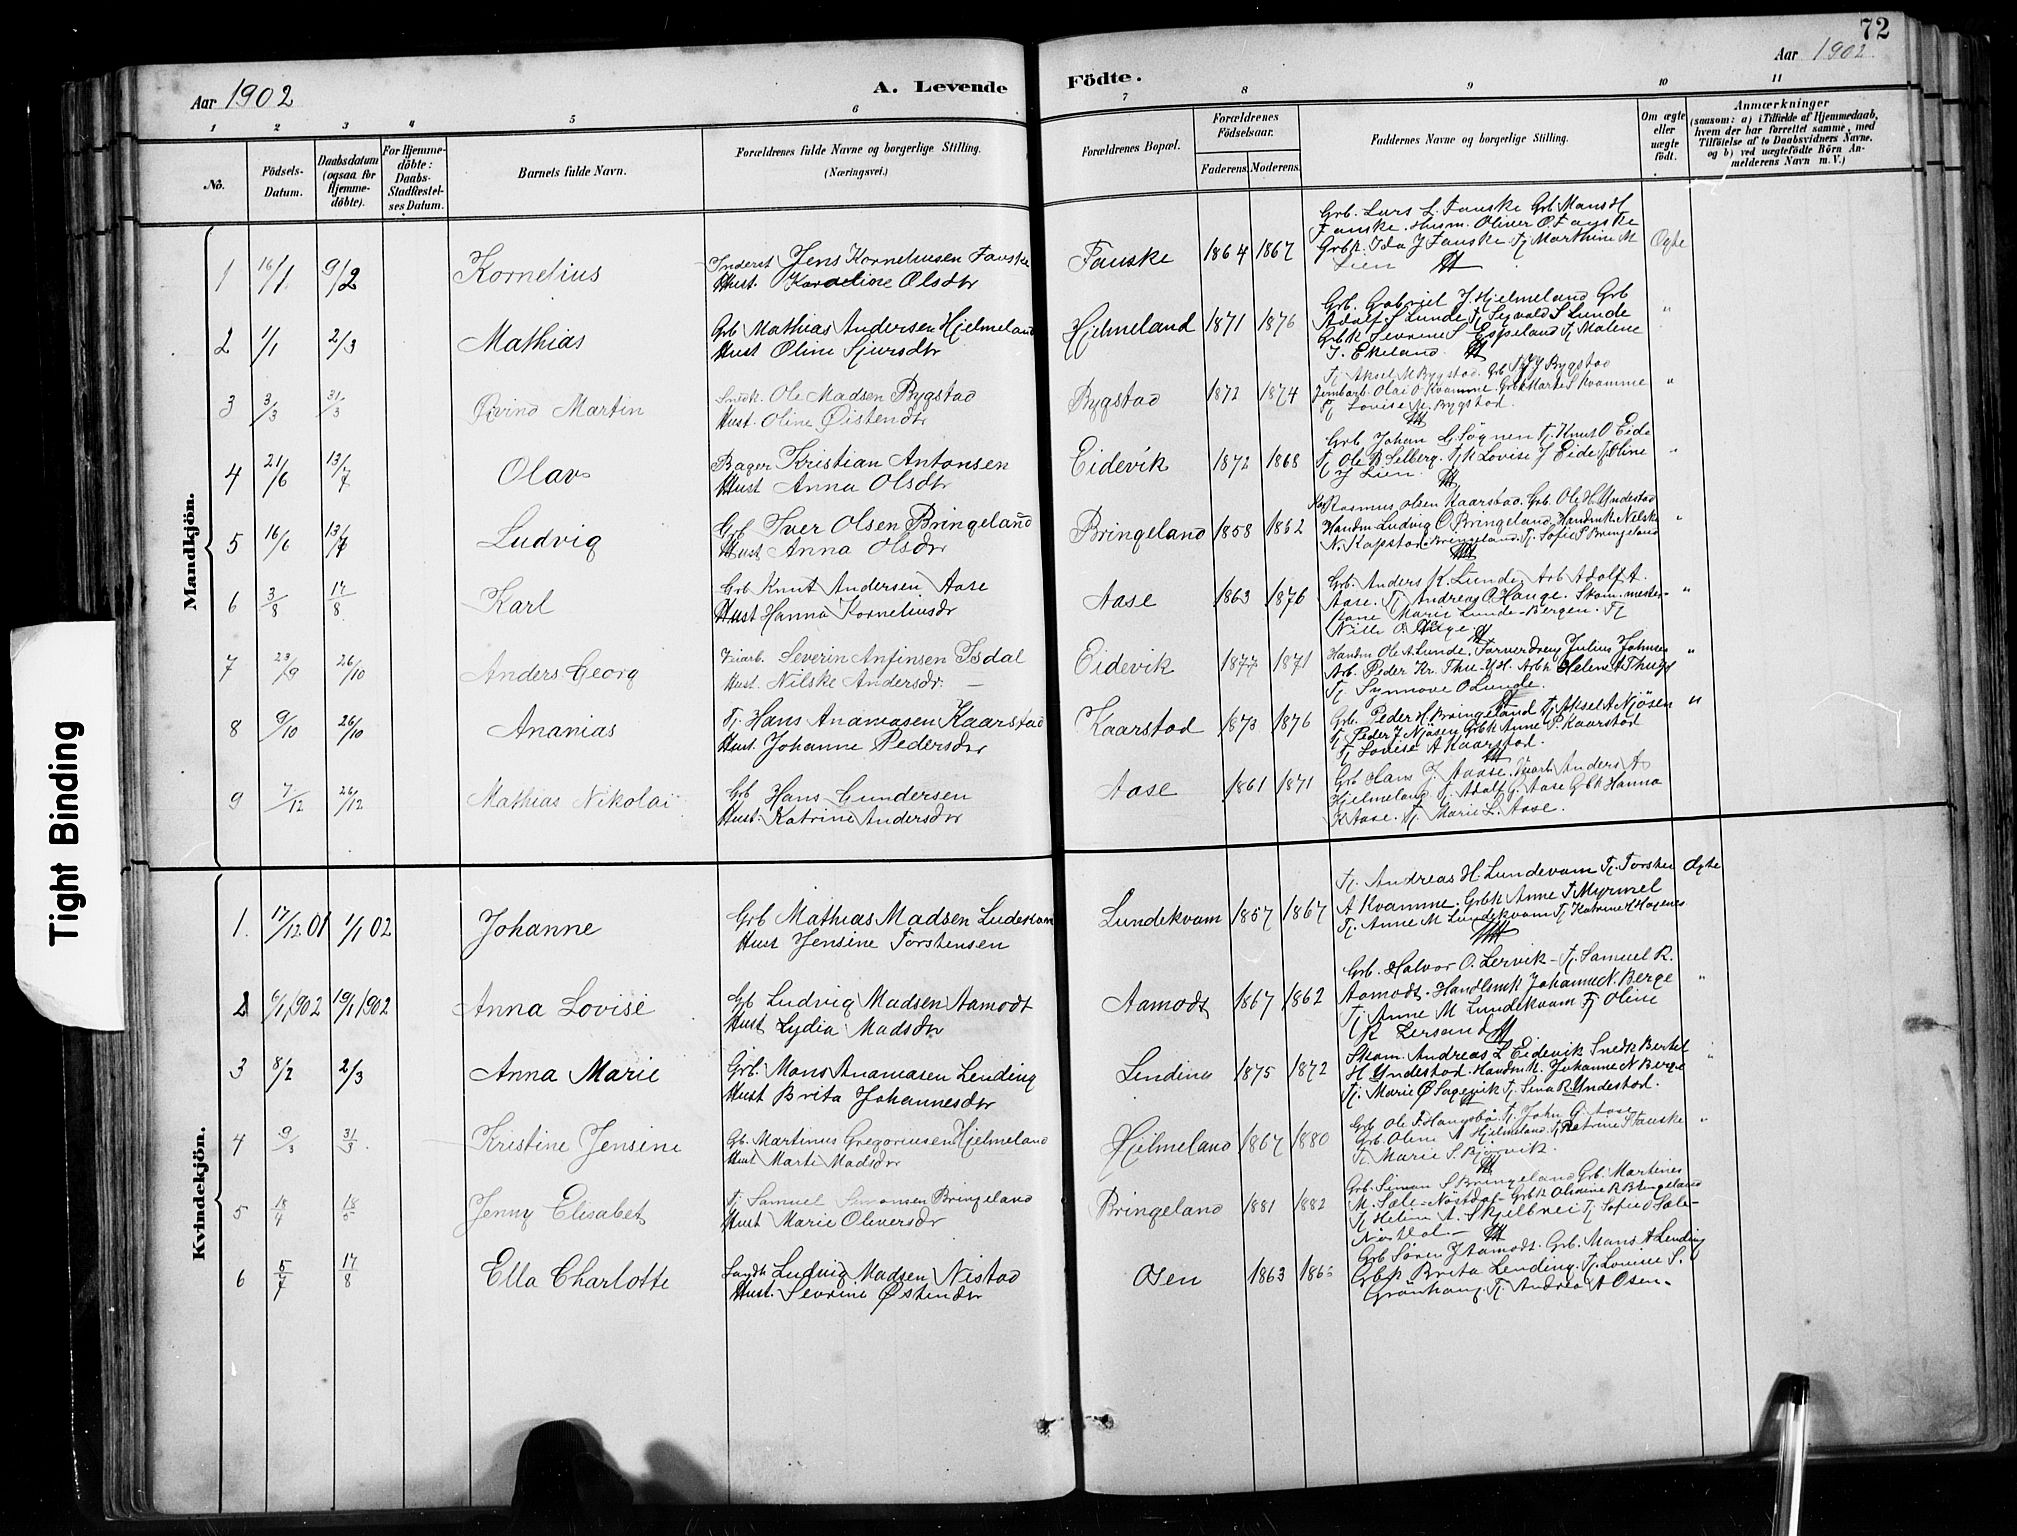 72
Aar 1902
A. Levende
Födte.
Aar 1902
1 2 3 4 5 6 7 8 9 10 11
No.
Födsels-Datum.
Daabsdatum (ogsaa for Hjemmedöbte).
For Hjemmedöbte: Daabs-Stadfæstelses Datum.
Barnets fulde Navn.
Forældrenes fulde Navne og borgerlige Stilling.
(Næringsvei.)
Forældrenes Bopæl.
Forældrenes Födselsaar.
Faderens. Moderens.
Faddernes Navne og borgerlige Stilling.
Om ægte eller uægte födt.
Anmærkninger
(saasom: a) i Tilfælde af Hjemmedaab,
hvem der har forrettet samme, med
Tilföielse af to Daabsvidners Navne.
og b) ved uægtefödte Börn Anmelderens Navn m. V.)
Mandkjön.
1 16/1 9/2 Kornelius
Inderst Jens Korneliusen Fauske
Hust. Karoline Olsdtr
Fauske 1864 1867
Grb. Lars L. Fauske Grb Mans H
Fauske. Husm. Oliver O. Fauske
Grbk. Ida J Fauske. Tj Marthine M
Lien
Ægte
2 1/1 2/3 Mathias
Grb Mathias Andersen Hjelmeland
Hust Oline Sjursdtr
Hjelmeland 1871 1876
Grb. Gabriel J. Hjelmeland Grb
Adolf S Lunde Tj Sigvald S Lunde
Grbk Sevrine S Espeland Tj Malene
J. Ekeland.
"
3 3/3 31/3 Øivind Martin
Snedk. Ole Madsen Bygstad
Hust. Oline Øistendtr
Bygstad 1872 1874
Tj Aksel M Bygstad. Grb J Bygstad
Jernbarb. Olai O Kvamme. Grbk Marte S Kvamme
Tj Lovise M. Bygstad.
"
4 21/6 13/7 Olav
Bager Kristian Antonsen
Hust Anna Olsdtr
Eidevik 1872 1868
Grb Johan G. Søgnen Tj. Knut O Eide
Tj Ole B Selberg. Tjk Lovise J Eide Tj Oline
J Lien.
"
5 16/6 13/7 Ludvig
Grb Iver Olsen Bringeland
Hust Anna Olsdtr
Bringeland 1858 1862
Rasmus Olsen Kaarstad. Grb. Ole H. Yndestad
Handm Ludvig O. Bringeland. Handmk. Nilske
N. Kapstad-Bringeland. Tj. Sofie S Bringeland
"
6 3/8 17/8 Karl
Grb Knut Andersen Aase
Hust Hanna Korneliusdr
Aase 1863 1876
Grb. Anders K. Lunde. Arb Adolf A.
Aase. Tj Andreas O. Hauge. Skom.mester-
kone Marie Lunde-Bergen. Tj
Nille O. Hauge.
"
7 29/9 26/10 Anders Georg
Severin Anfinsen Isdal
Hust. Nilske Andersdr. —
Eidevik 1877 1871
Handm Ole A. Lunde. Farverdreng Julius Johnsen
Arb. Peder Kr. Thue-YH. Arbk Helene A Thue
Tj. Synnove O Lunde.
"
8 9/10 26/10 Ananias
Tj. Hans Ananiasen Kaarstad
Hust. Johanne Pedersdtr
Kaarstad 1873 1876
Grb. Peder H. Bringeland Tj. Aksel A Njøsen
Tj Peder J Njøsen Grbk Anne P. Kaarstad
Tj Lovise A Kaarstad.
"
9 7/12 26/12 Mathias Nikolai
Grb Hans Gundersen
Hust. Katrine Andersdtr
Aase 1861 1871
Grb Hans J. Aase. Anders A
Hjelmeland Tj. Adolf G. Aase Gbk Hanna
K Aase. Tj. Marie L. Aase.
Kvindekjön.
1. 17/12 01 1/1 02 Johanne
Grb Mathias Madsen Lundekvam
Hust Jensine Torstensen
Lundekvam 1857 1867
Tj. Andreas H. Lundevam Tj. Torsten
A Kvamme. Grbk Anne T Myrmel
Tj. Anne M Lundekvam Tj Katrine
Ægte
2 6/1 1902 19/1 1902 Anna Lovise
Gb Ludvig Madsen Aamodt
Hust Lydia Madsdtr
Aamodt 1867 1862
Grb. Halvor O. Lervik- Tj. Samuel R.
Aamodt. Handlsmk Johanne N. Berge
Tj Anne M Lundekvam Tj Oline
R Lersand
"
3 8/2 2/3 Anna Marie
Grb. Mons Ananiasen Lending
Hust Brita Johannesdtr
Lending 1875 1872
Skom. Andreas L Eidevik Snedk Bertel
H Yndestad. Handmk. Johanne N Berge
Tj. Marie Ø Sagevik Tj. Sina R. Yndestad.
"
4 9/3 31/3 Kristine Jensine
Gb. Martinus Gregoriusen Hjelmeland
Hust Marte Madsdtr
Hjelmeland 1867 1880
Grb Ole F. Haugsbø. Tj. John G. Aase
Grb. Oline A Hjelmeland. Tj Katrine S Fauske
Tj. Marie S. Bjørvik.
"
5 18/4 18/5 Jenny Elisabet
Tj Samuel Simonsen Bringeland
Hust Marie Oliversdr
Bringeland 1881 1882
Grb. Simon S Bringeland Grb. Martines
M. Sæle-Nøstdal-Grbk Olsine R Bringeland
Tj Helene A. Skjelbrei Tj. Sofie D Sæle-
Nøstdal.—
6 5/7 17/8 Ella Charlotte
Ludvig Madsen Nistad
Hust. Sevrine Østendtr
Osen 1863
Grb Søren J Aamodt. Grb. Mans A Lending
Grbk Brita Lending. Tj. Lovise S.
Grønhaug. Tj. Andrea A Osen.
Tight Binding